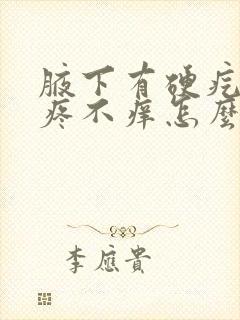 腋下有硬疙
疼不痒怎麼
李應貴